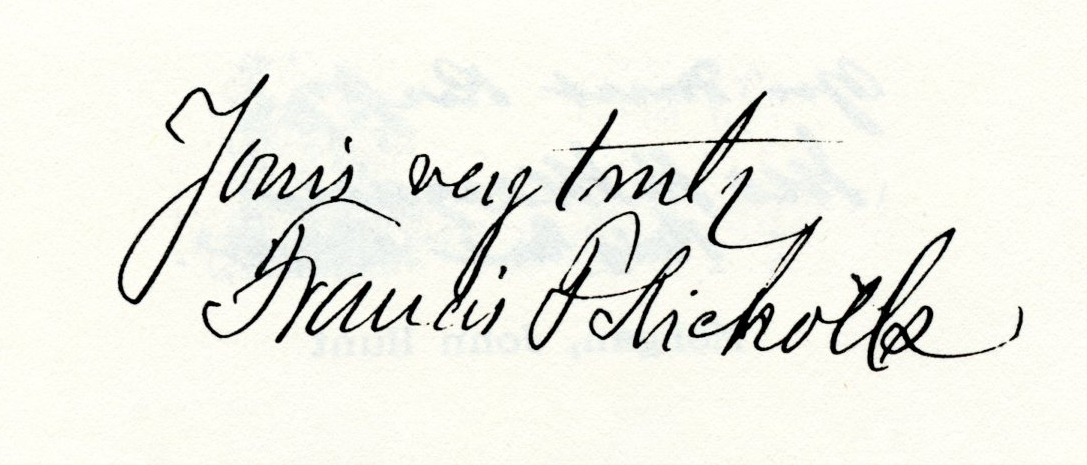 Yours very truly
Francis T Nicholls